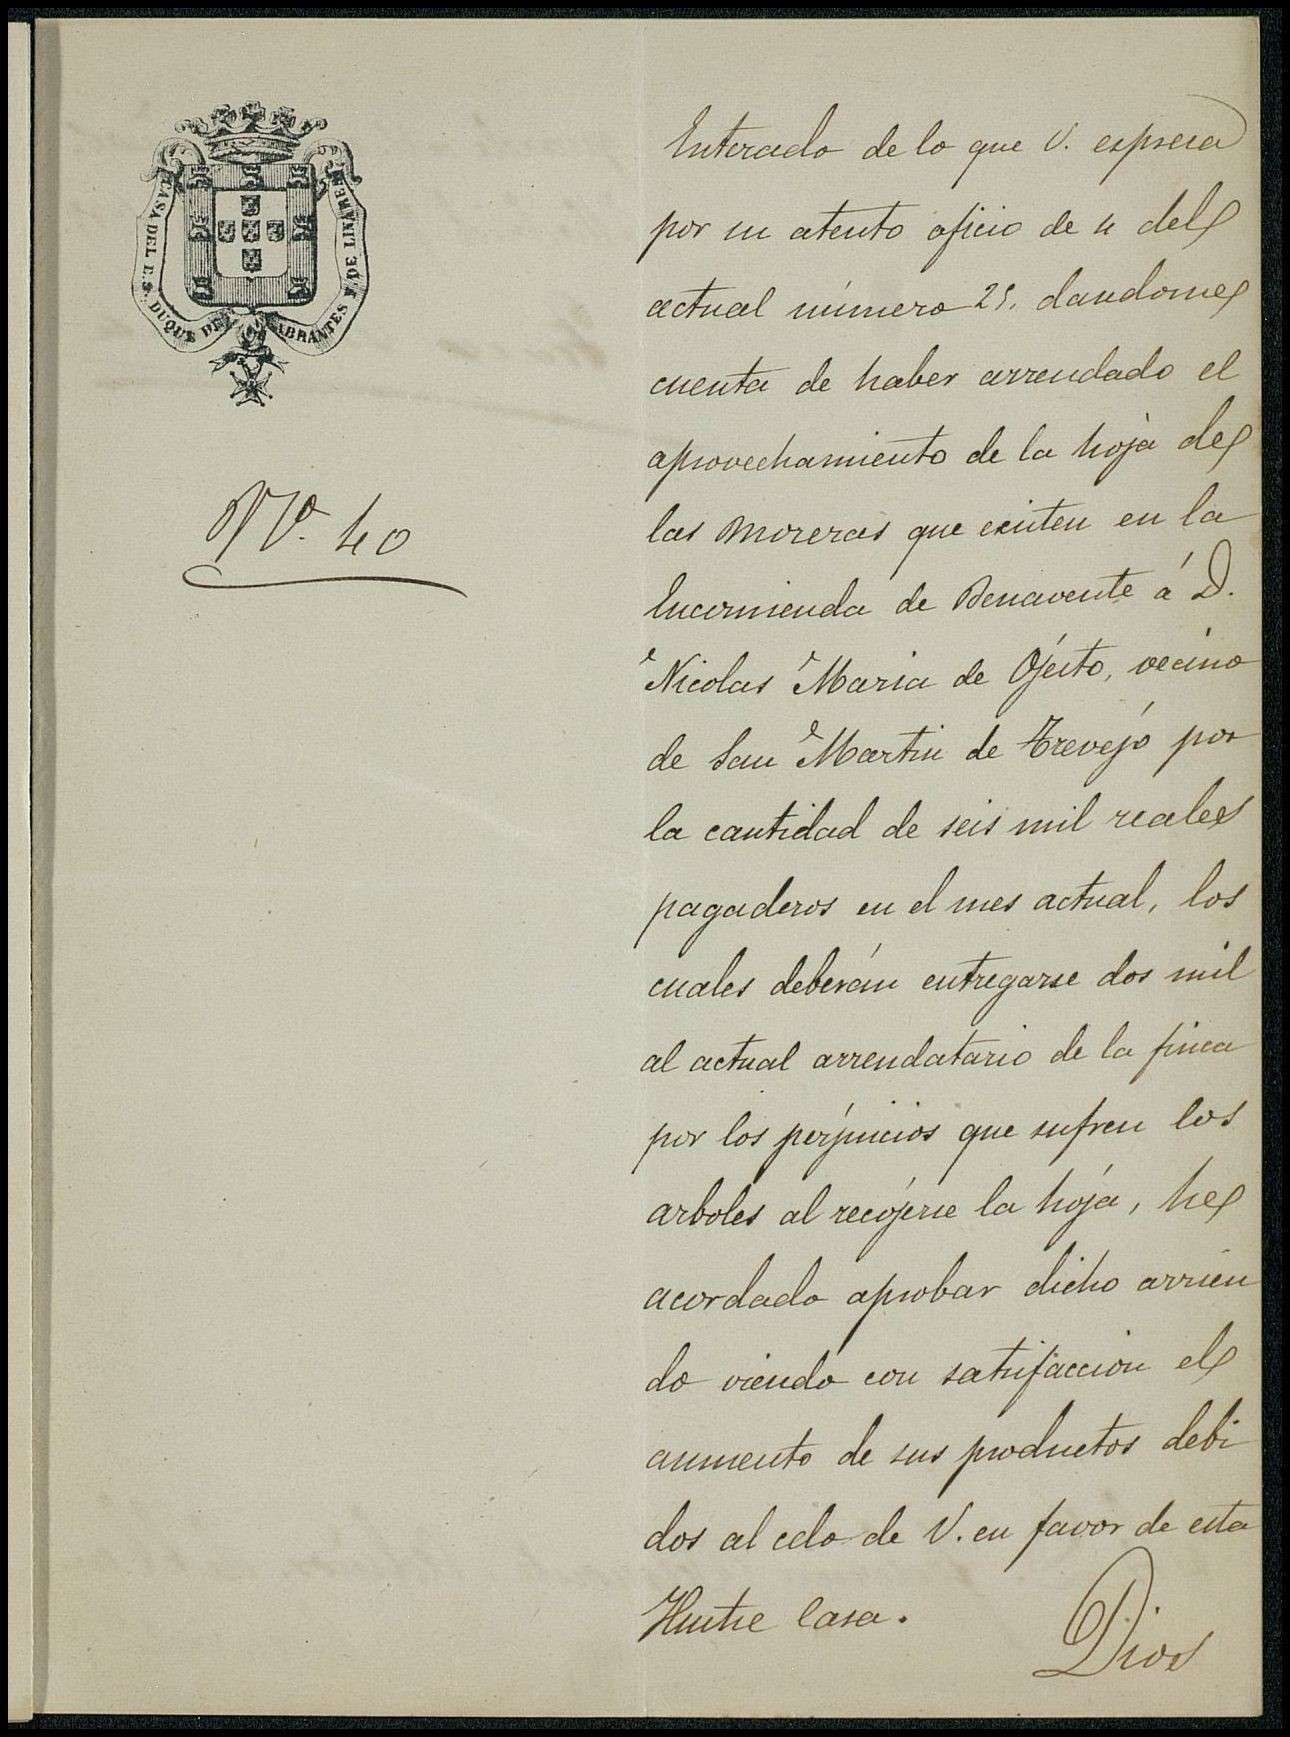 CASA DEL E. S. DUQUE DE ABRANTES Y DE LINARES
Nº. 40
Enterado de lo que V. espresa
por su atento oficio de 4 del
actual número 25. dandome
cuenta de haber arrendado el
aprovechamiento de la hoja de
las moreras que existen en la
Encomienda de Benavente á D.
Nicolas Maria de Ojesto, vecino
de San Martin de Trevejo por
la cantidad de seis mil reales
pagaderos en el mes actual, los
cuales deberán entregarse dos mil
al actual arrendatario de la finca
por los perjuicios que sufren los
arboles al recojerse la hoja, he
acordado aprobar dicho arrien
do viendo con satisfaccion el
aumento de sus productos debi
dos al celo de V. en favor de esta
Ilustre Casa.
Dios